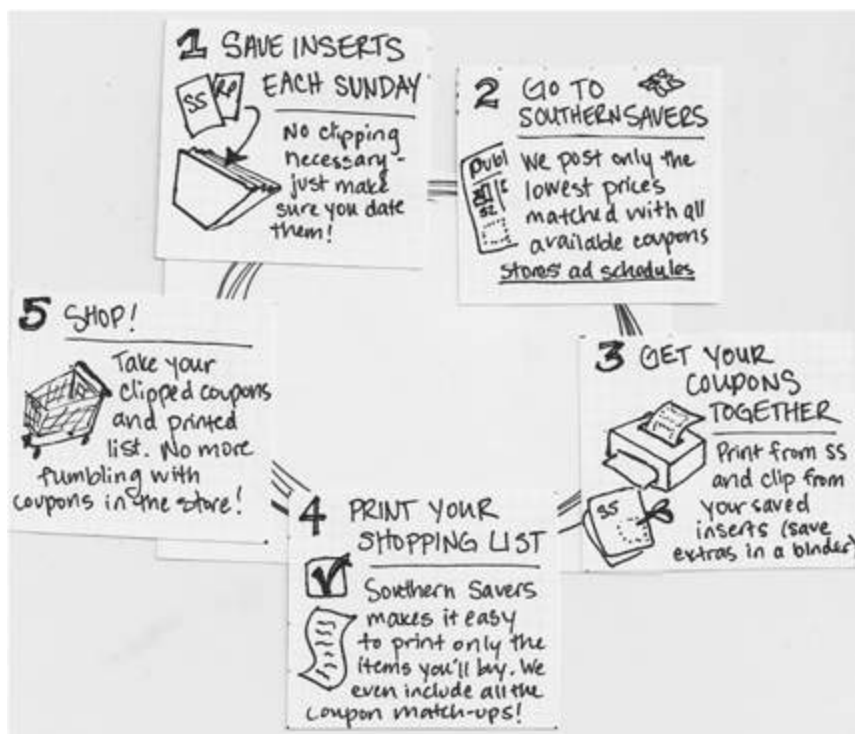 1 SAVE INSERTS
EACH SUNDAY
SS RP
No clipping
necessary -
just make
sure you date
them!
2 GO TO
SOUTHERNSAVERS
Publ
We post only the
lowest prices
matched with all
available coupons
stores' ad schedules
3 GET YOUR
COUPONS
TOGETHER
Print from SS
and clip from
your saved
inserts (save
extras in a binder)
SS
4 PRINT YOUR
SHOPPING LIST
Southern Savers
makes it easy
to print only the
items you'll buy. We
even include all the
coupon match-ups!
5 SHOP!
Take your
clipped coupons
and printed
list. No more
fumbling with
coupons in the store!